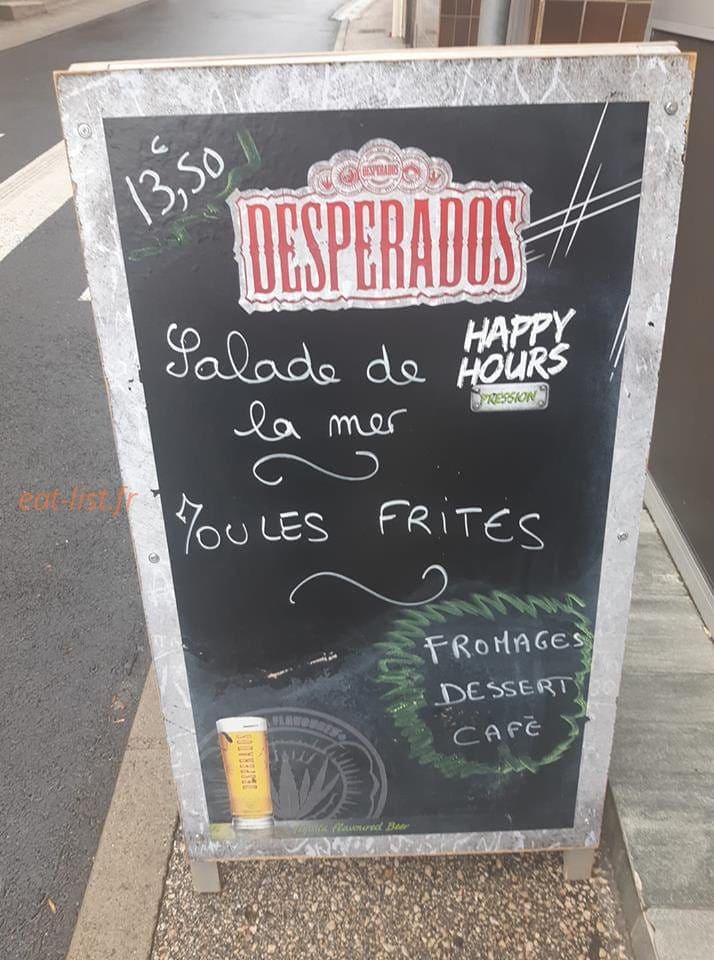 13,50€
DESPERADOS
DESPERADOS
Salade de
la mer
HAPPY
HOURS
PRESSION
eat-list.fr
MOULES FRITES
FROMAGES
DESSERT
CAFÉ
DESPERADOS
Tequila Flavoured Beer